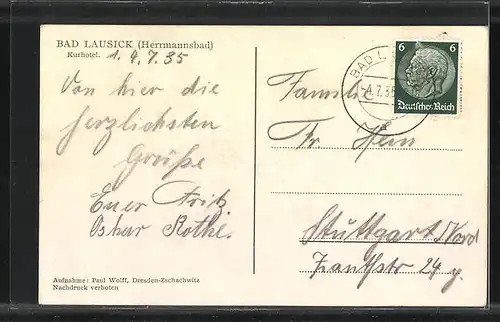 BAD LAUSICK (Herrmannsbad)
Kurhotel. 1. 4.7.35
Von hier die
herzlichsten
Grüße
Euer Fritz
Oskar Rothe.
Aufnahme: Paul Wolff, Dresden-Zschachwitz
Nachdruck verboten
BAD L
-4.7.35
6 6
Deutsches Reich
Familie
Fr
Stuttgart/Nord
24